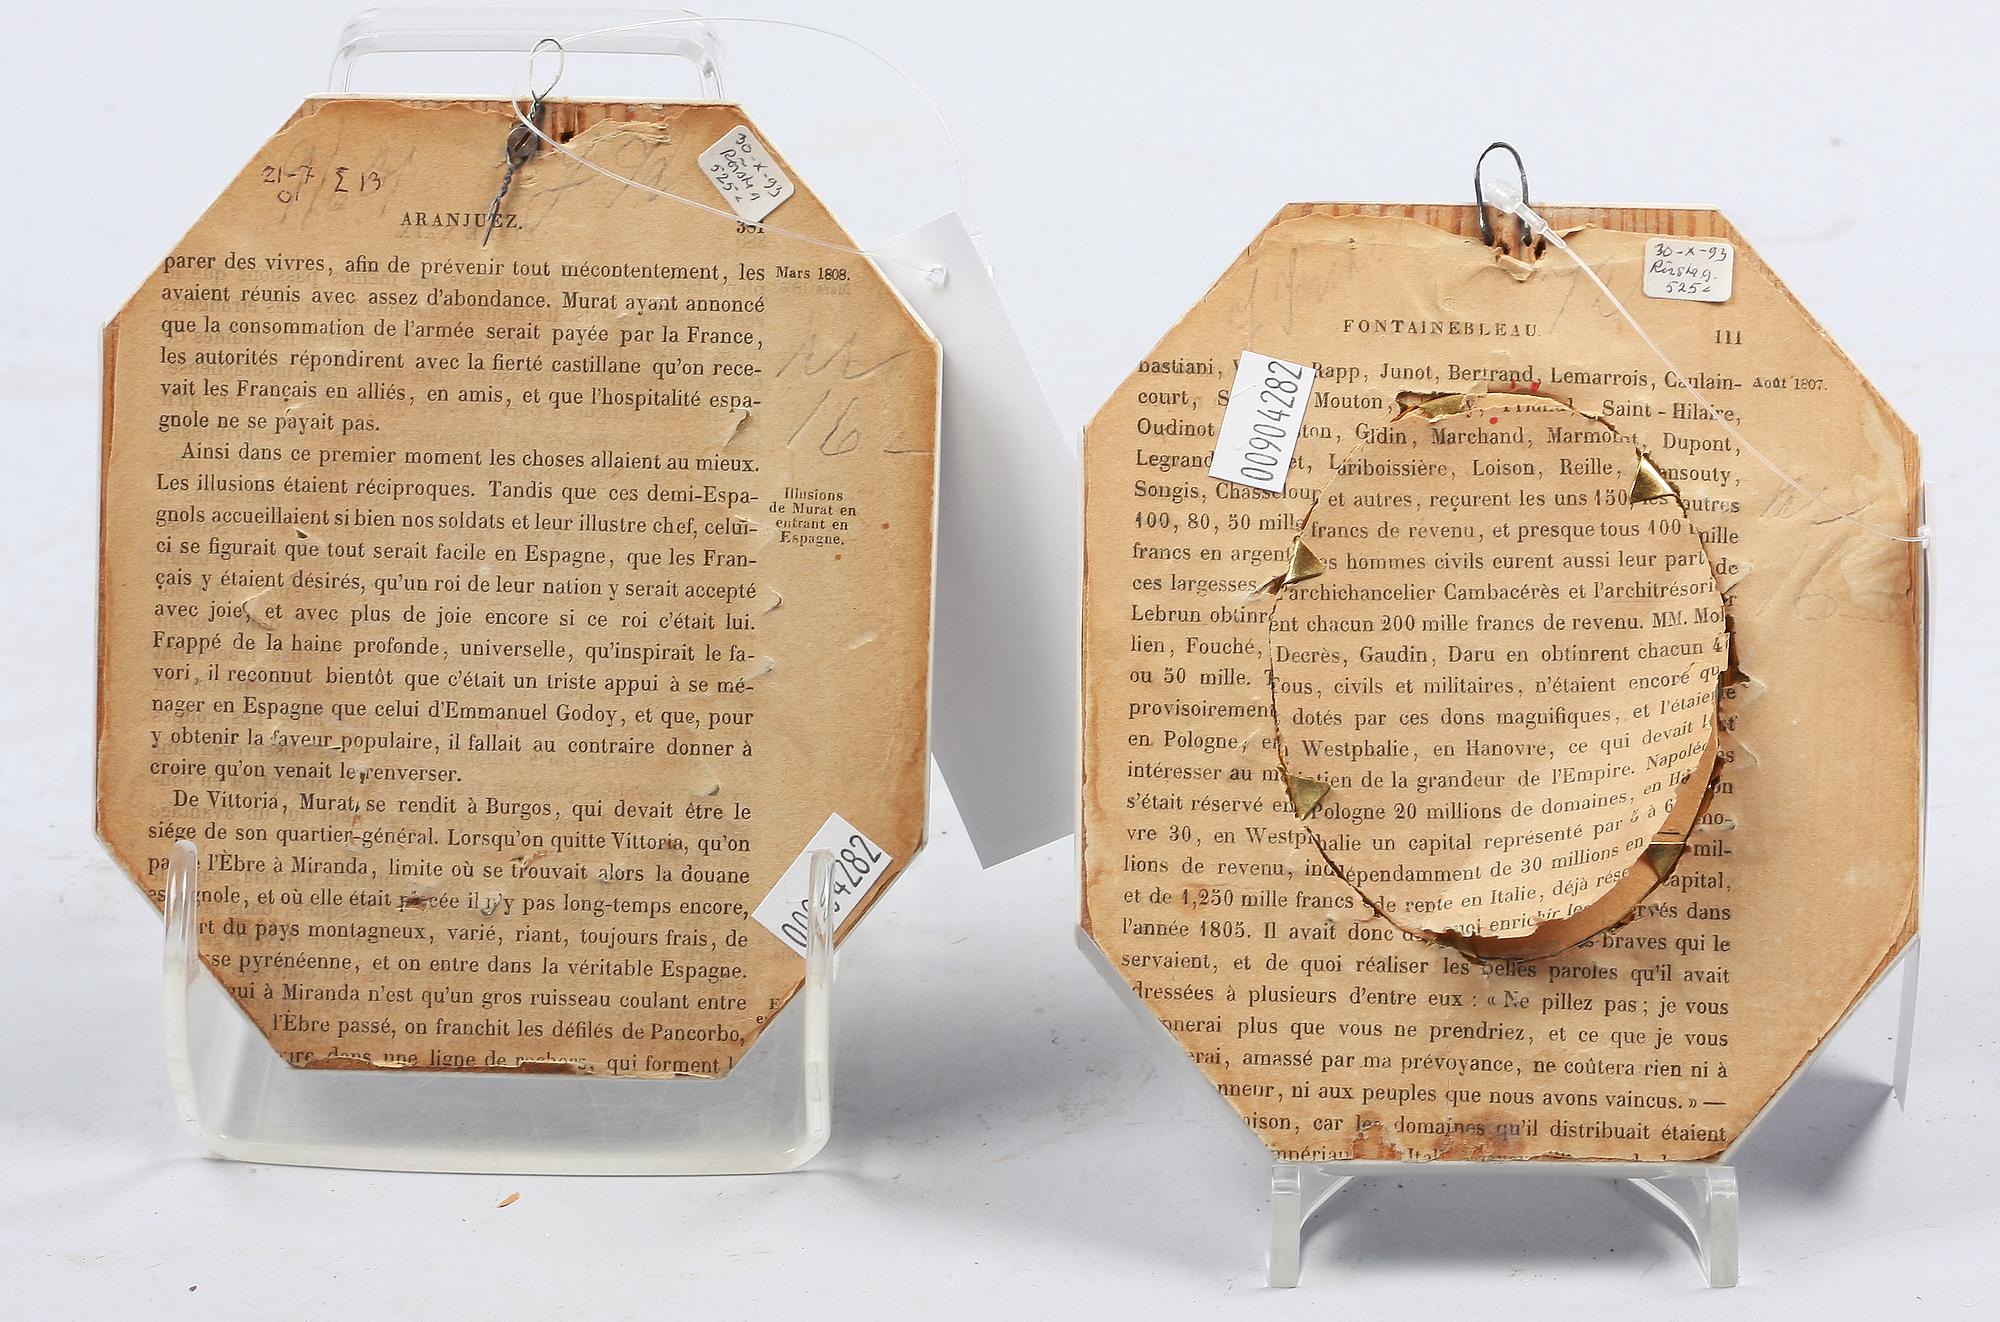 21-7 Σ 13
30-X-93
525
ARANJUEZ. 381
parer des vivres, afin de prévenir tout mécontentement, les
avaient réunis avec assez d'abondance. Murat ayant annoncé
que la consommation de l'armée serait payée par la France,
les autorités répondirent avec la fierté castillane qu'on rece-
vait les Français en alliés, en amis, et que l'hospitalité espa-
gnole ne se payait pas.
Ainsi dans ce premier moment les choses allaient au mieux.
Les illusions étaient réciproques. Tandis que ces demi-Espa-
gnols accueillaient si bien nos soldats et leur illustre chef, celui-
ci se figurait que tout serait facile en Espagne, que les Fran-
çais y étaient désirés, qu'un roi de leur nation y serait accepté
avec joie, et avec plus de joie encore si ce roi c'était lui.
Frappé de la haine profonde, universelle, qu'inspirait le fa-
vori, il reconnut bientôt que c'était un triste appui à se mé-
nager en Espagne que celui d'Emmanuel Godoy, et que, pour
y obtenir la faveur populaire, il fallait au contraire donner à
croire qu'on venait le renverser.
De Vittoria, Murat se rendit à Burgos, qui devait être le
siége de son quartier-général. Lorsqu'on quitte Vittoria, qu'on
l'Èbre à Miranda, limite où se trouvait alors la douane
gnole, et où elle était il n'y pas long-temps encore,
rt du pays montagneux, varié, riant, toujours frais, de
sse pyrénéenne, et on entre dans la véritable Espagne.
qui à Miranda n'est qu'un gros ruisseau coulant entre
l'Èbre passé, on franchit les défilés de Pancorbo,
dans une ligne de rochers, qui forment l
Mars 1808.
16
Illusions
de Murat en
entrant en
Espagne.
00904282
30-X-93
525
FONTAINEBLEAU. 111
bastiani, Rapp, Junot, Bertrand, Lemarrois, Caulain-
court, Mouton, Saint-Hilaire,
Oudinot ton, Gudin, Marchand, Marmont, Dupont,
Legrand et, Lariboissière, Loison, Reille, ansouty,
Songis, Chasseloup et autres, reçurent les uns 150, les autres
100, 80, 50 mille francs de revenu, et presque tous 100 mille
francs en argent es hommes civils eurent aussi leur part de
ces largesses archichancelier Cambacérès et l'architrésori
Lebrun obtinrent chacun 200 mille francs de revenu. MM. Mol
lien, Fouché, Decrès, Gaudin, Daru en obtinrent chacun 4
ou 50 mille. Tous, civils et militaires, n'étaient encore qu
provisoirement dotés par ces dons magnifiques, et l'étaient
en Pologne, en Westphalie, en Hanovre, ce qui devait les
intéresser au maintien de la grandeur de l'Empire. Napoléon
s'était réservé en Pologne 20 millions de domaines, en Hano-
vre 30, en Westphalie un capital représenté par 5 à 6 mil-
lions de revenu, indépendamment de 30 millions en capital,
et de 1,250 mille francs de rente en Italie, déjà réservés dans
l'année 1805. Il avait donc de quoi enrichir les braves qui le
servaient, et de quoi réaliser les belles paroles qu'il avait
dressées à plusieurs d'entre eux : « Ne pillez pas ; je vous
nnerai plus que vous ne prendriez, et ce que je vous
erai, amassé par ma prévoyance, ne coûtera rien ni à
nneur, ni aux peuples que nous avons vaincus. » —
aison, car les domaines qu'il distribuait étaient
mpériau Ital
Août 1807.
00904282